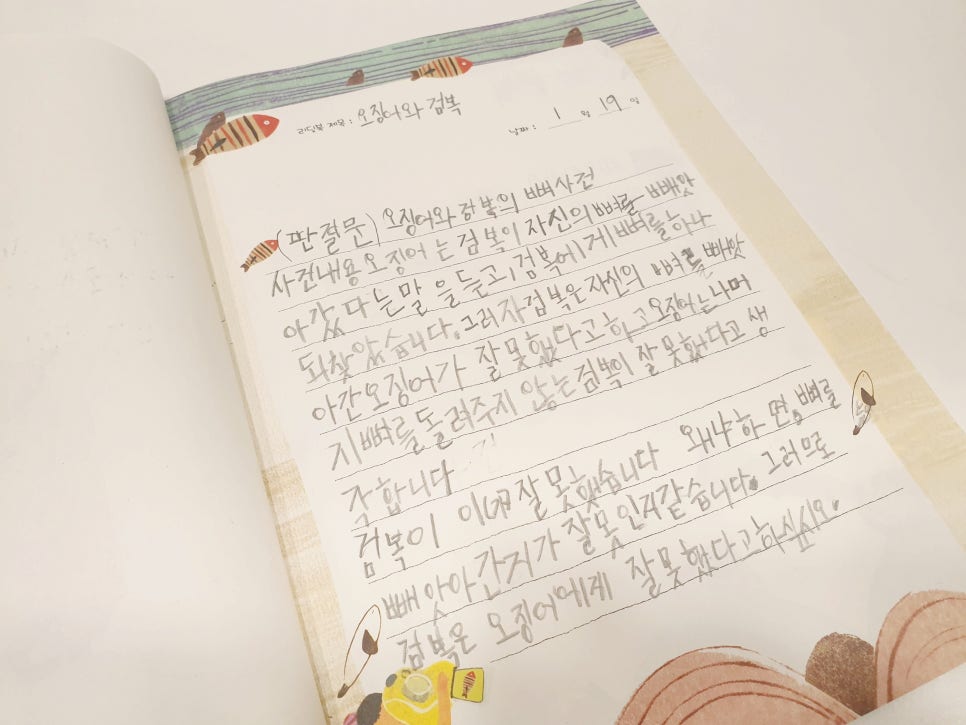 리딩북 제목 : 오징어와 검복
날짜 : 1 월 19 일
(판절문) 오징어와 검복의 뼈사건
사건내용 오징어는 검복이 자신의 뼈를 빼앗
아갔다는 말을 듣고, 검복에게 뼈를 하나
되찾았습니다. 그러자 검복은 자신의 뼈를 빼앗
아간 오징어가 잘못했다고 하고 오징어는 나머
지 뼈를 돌려주지 않는 검복이 잘못했다고 생
각합니다
검복이 잘못했습니다 왜냐하면, 뼈를
빼앗아 간거가 잘못인거같습니다. 그러므로
검복은 오징어에게 잘못했다고하십시오.